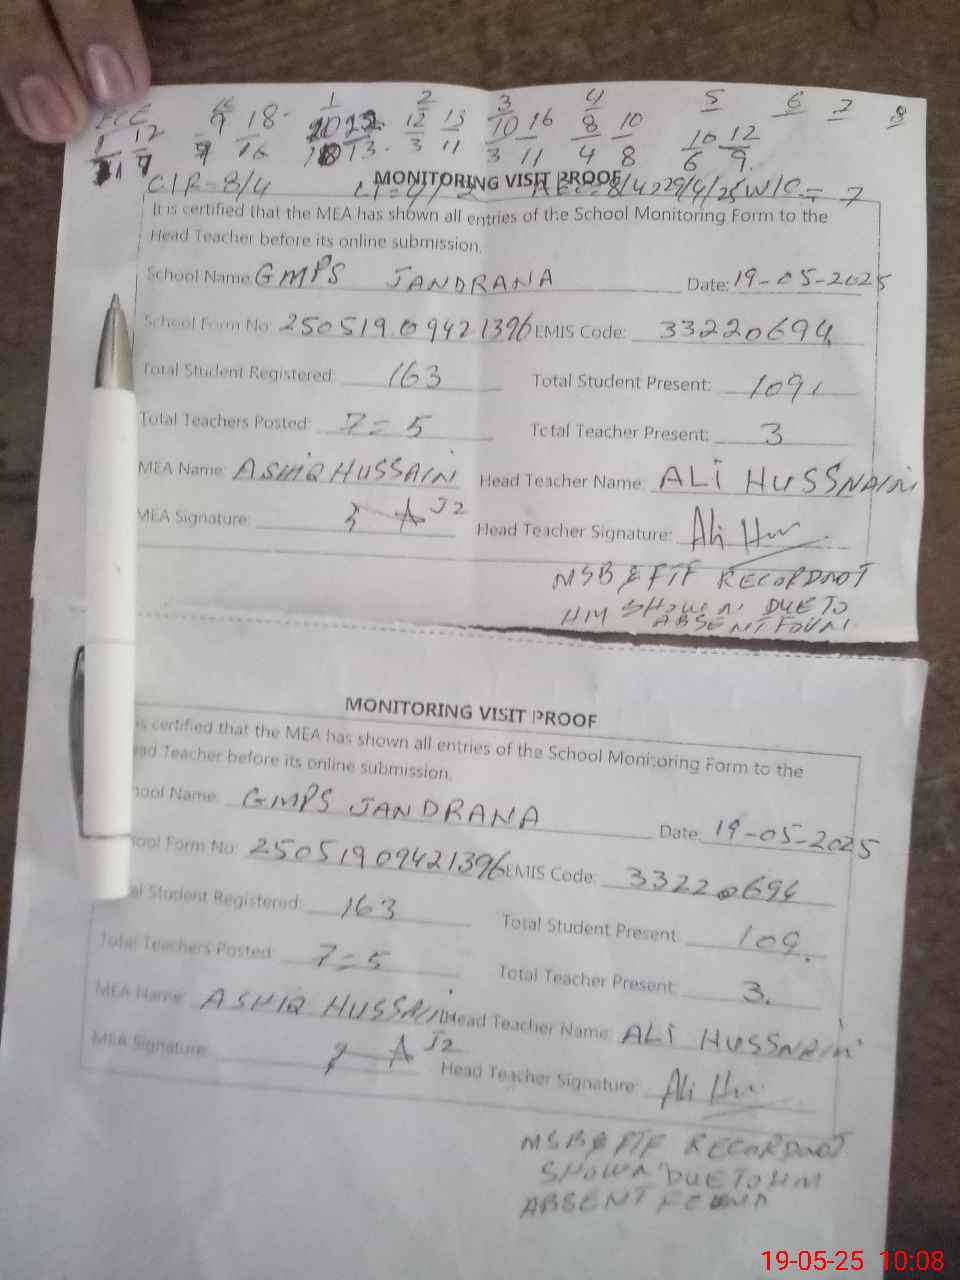 ECE 4 1 2 3 4 5 6 7 8
1 12 9 18 20 22 12 13 10 16 8 10 10 12
11 9 9 16 18 13 3 11 3 11 4 8 6 9
MONITORING VISIT PROOF
CIR=8/4 29/4/25 W/C= 7
It is certified that the MEA has shown all entries of the School Monitoring Form to the
Head Teacher before its online submission.
School Name GMPS JANDRANA Date: 19-05-2025
School Form No: 25051909421396 EMIS Code: 33220694
Total Student Registered: 163 Total Student Present: 109
Total Teachers Posted: 7=5 Total Teacher Present: 3
MEA Name: ASHIQ HUSSAIN Head Teacher Name: ALI HUSSNAIN
MEA Signature: J2 Head Teacher Signature: Ali
MSB & FTF RECORD NOT
HM SHOWN DUE TO
ABSENT FOUN
MONITORING VISIT PROOF
is certified that the MEA has shown all entries of the School Monitoring Form to the
ead Teacher before its online submission.
hool Name: GMPS JANDRANA Date: 19-05-2025
hool Form No: 25051909421396 EMIS Code: 33220694
al Student Registered: 163 Total Student Present: 109.
Total Teachers Posted: 7=5 Total Teacher Present: 3.
MEA Name: ASHIQ HUSSAIN Head Teacher Name: ALI HUSSNAIN
MEA Signature: J2 Head Teacher Signature: Ali
MSB & FTF RECORD NOT
SHOWN DUE TO HM
ABSENT FOUND
19-05-25 10:08